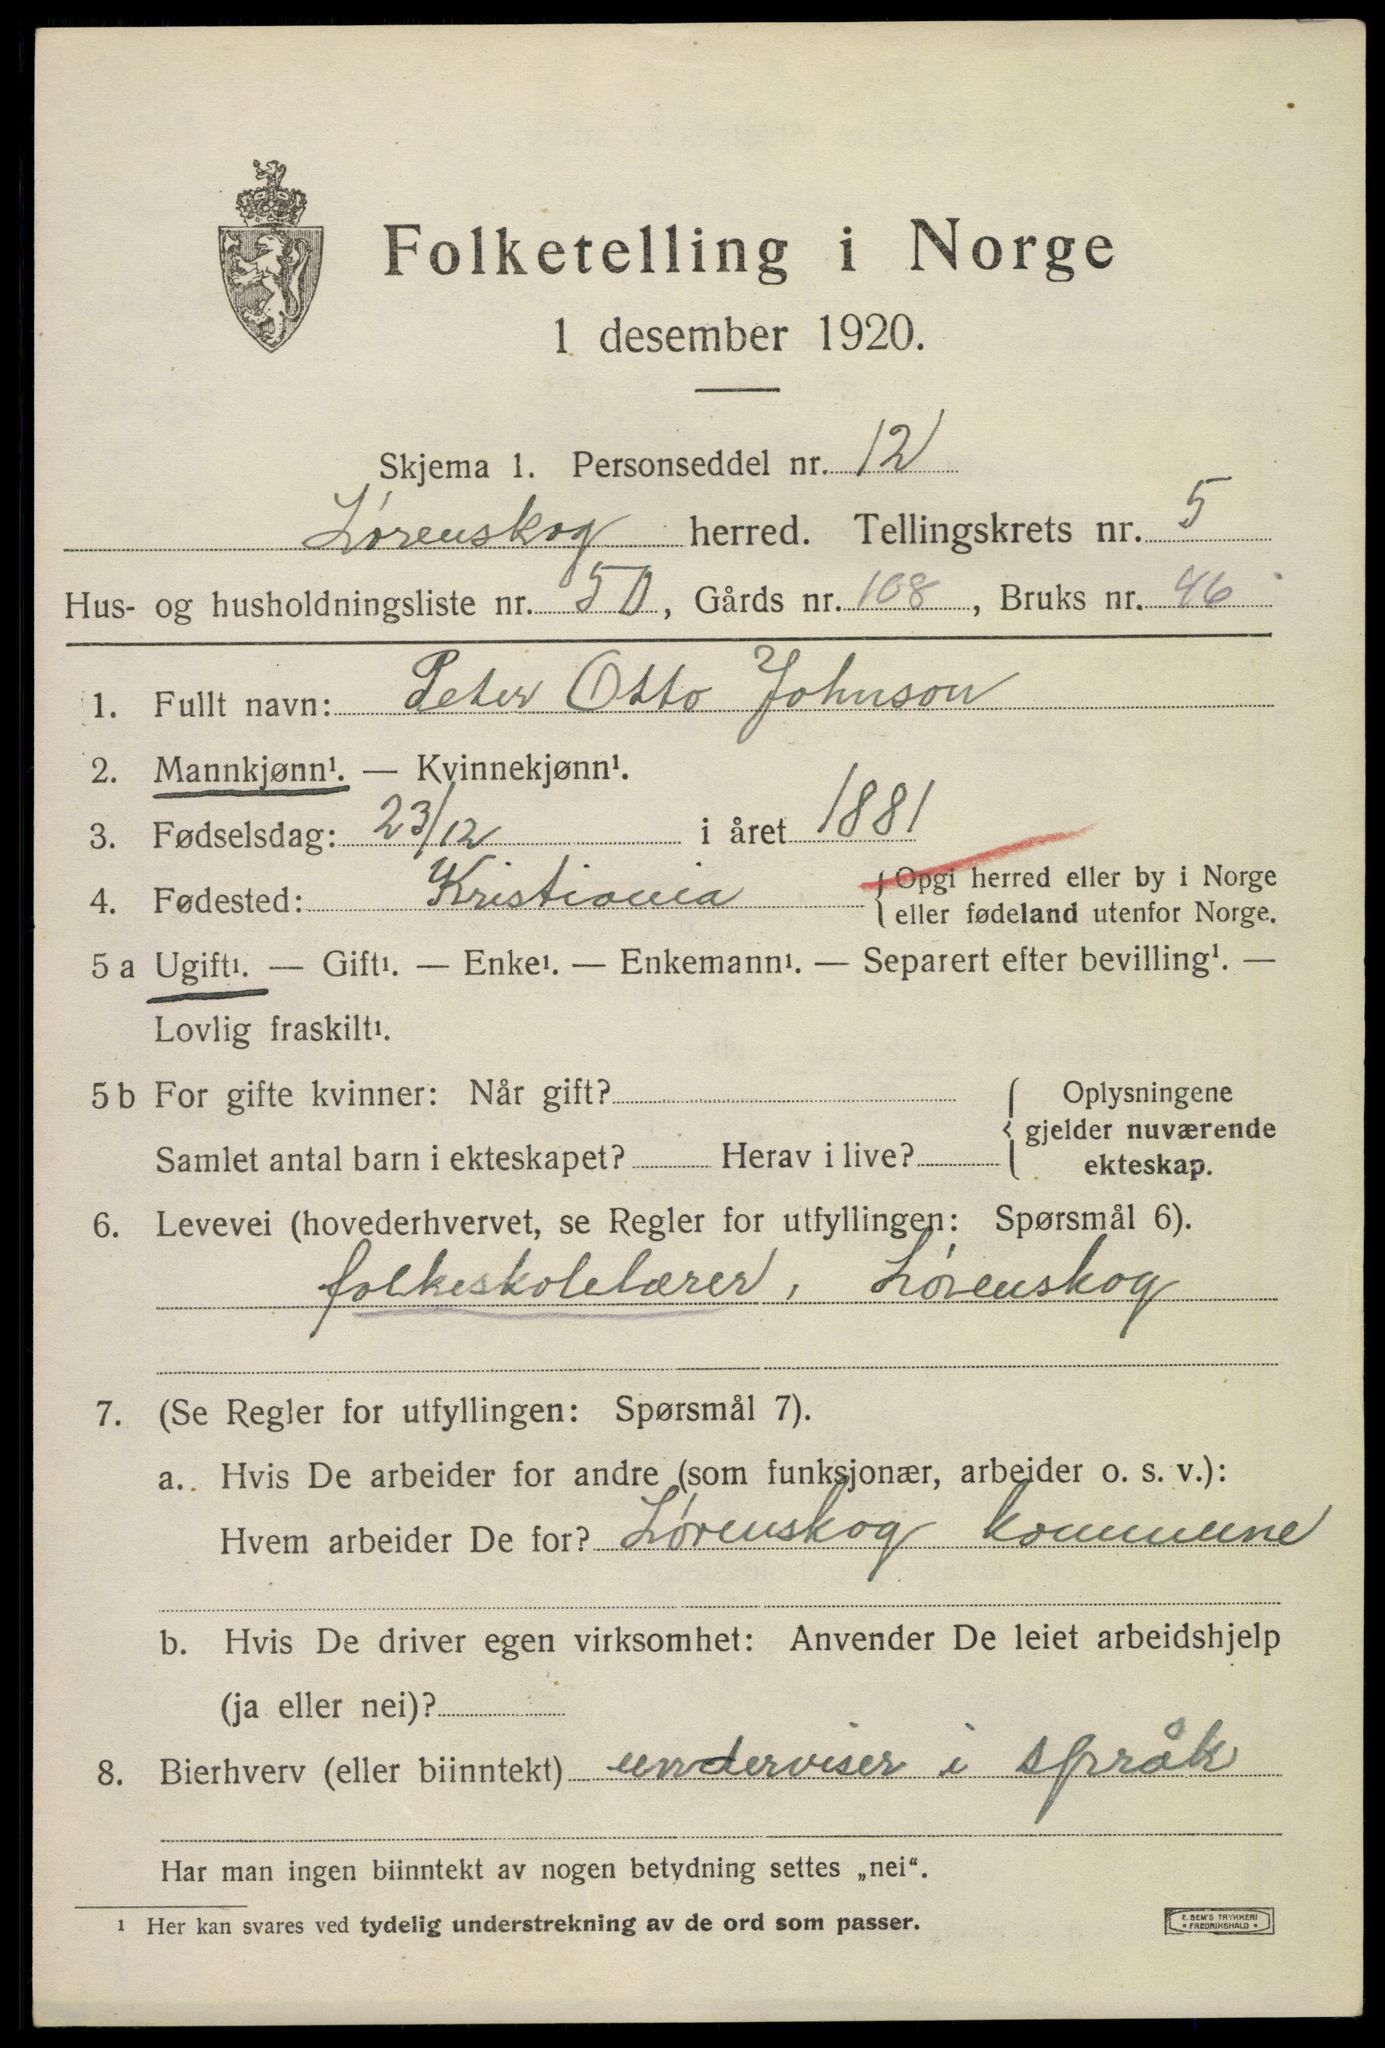 Folketelling i Norge
1 desember 1920.
Skjema 1. Personseddel nr. 12
Lørenskog herred. Tellingskrets nr. 5
Hus- og husholdningsliste nr. 50, Gårds nr. 108, Bruks nr. 46
1. Fullt navn: Peter Otto Johnson
2. Mannkjønn¹. — Kvinnekjønn¹.
3. Fødselsdag: 23/12 i året 1881
4. Fødested: Kristiania { Opgi herred eller by i Norge
eller fødeland utenfor Norge.
5 a Ugift¹. — Gift¹. — Enke¹. — Enkemann¹. — Separert efter bevilling¹. —
Lovlig fraskilt¹.
5 b For gifte kvinner: Når gift? { Oplysningene
gjelder nuværende
Samlet antal barn i ekteskapet? Herav i live? ekteskap.
6. Levevei (hovederhvervet, se Regler for utfyllingen: Spørsmål 6).
folkeskolelærer, Lørenskog
7. (Se Regler for utfyllingen: Spørsmål 7).
a. Hvis De arbeider for andre (som funksjonær, arbeider o. s. v.):
Hvem arbeider De for? Lørenskog kommune
b. Hvis De driver egen virksomhet: Anvender De leiet arbeidshjelp
(ja eller nei)?
8. Bierhverv (eller biinntekt) underviser i språk
Har man ingen biinntekt av nogen betydning settes „nei“.
¹ Her kan svares ved tydelig understrekning av de ord som passer.
E. SEM'S TRYKKERI
• FREDRIKSHALD •